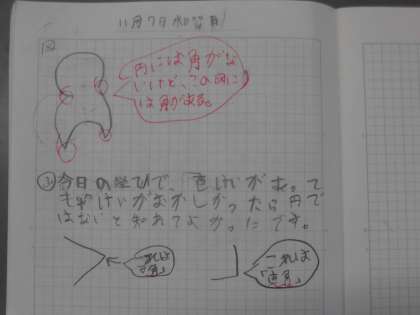 11月7日水曜日
円には角がな
いけど、この円に
は角がある。
③今日の学びで、色けいがあって
も形けいがおかしかったら円で
はないと知れてよかったです。
これは
「角」
これは
「直角」